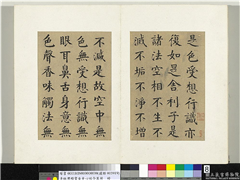 是色受想行識亦
復如是舍利子是
諸法空相不生不
滅不垢不淨不增
不減是故空中無
色無受想行識無
眼耳鼻舌身意無
色聲香味觸法無